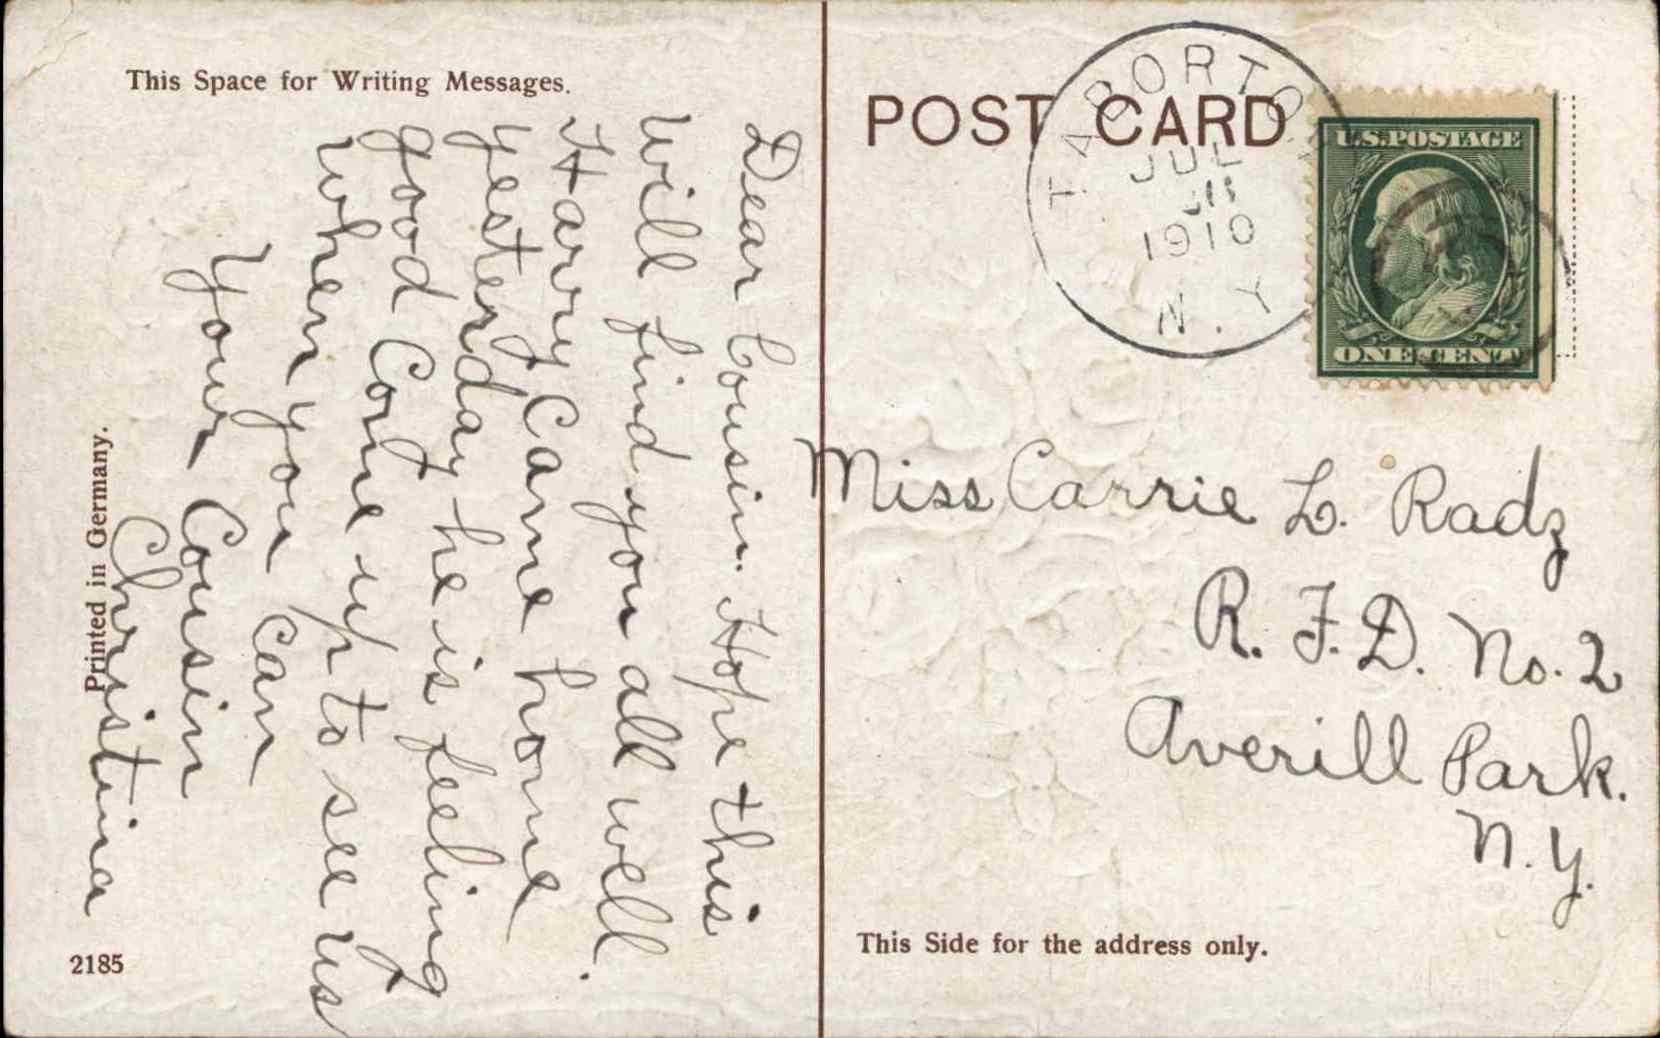 This Space for Writing Messages.
Dear Cousin. Hope this
will find you all well.
Harry Came home
yesterday he is feeling
good Come up to see us
when you can
Your Cousin
Christina
Printed in Germany.
2185
POST CARD
TABORTON
JUL
1910
N.Y.
U.S. POSTAGE
ONE CENT
Miss Carrie L. Radz
R. F. D. No. 2
Averill Park.
N. Y.
This Side for the address only.